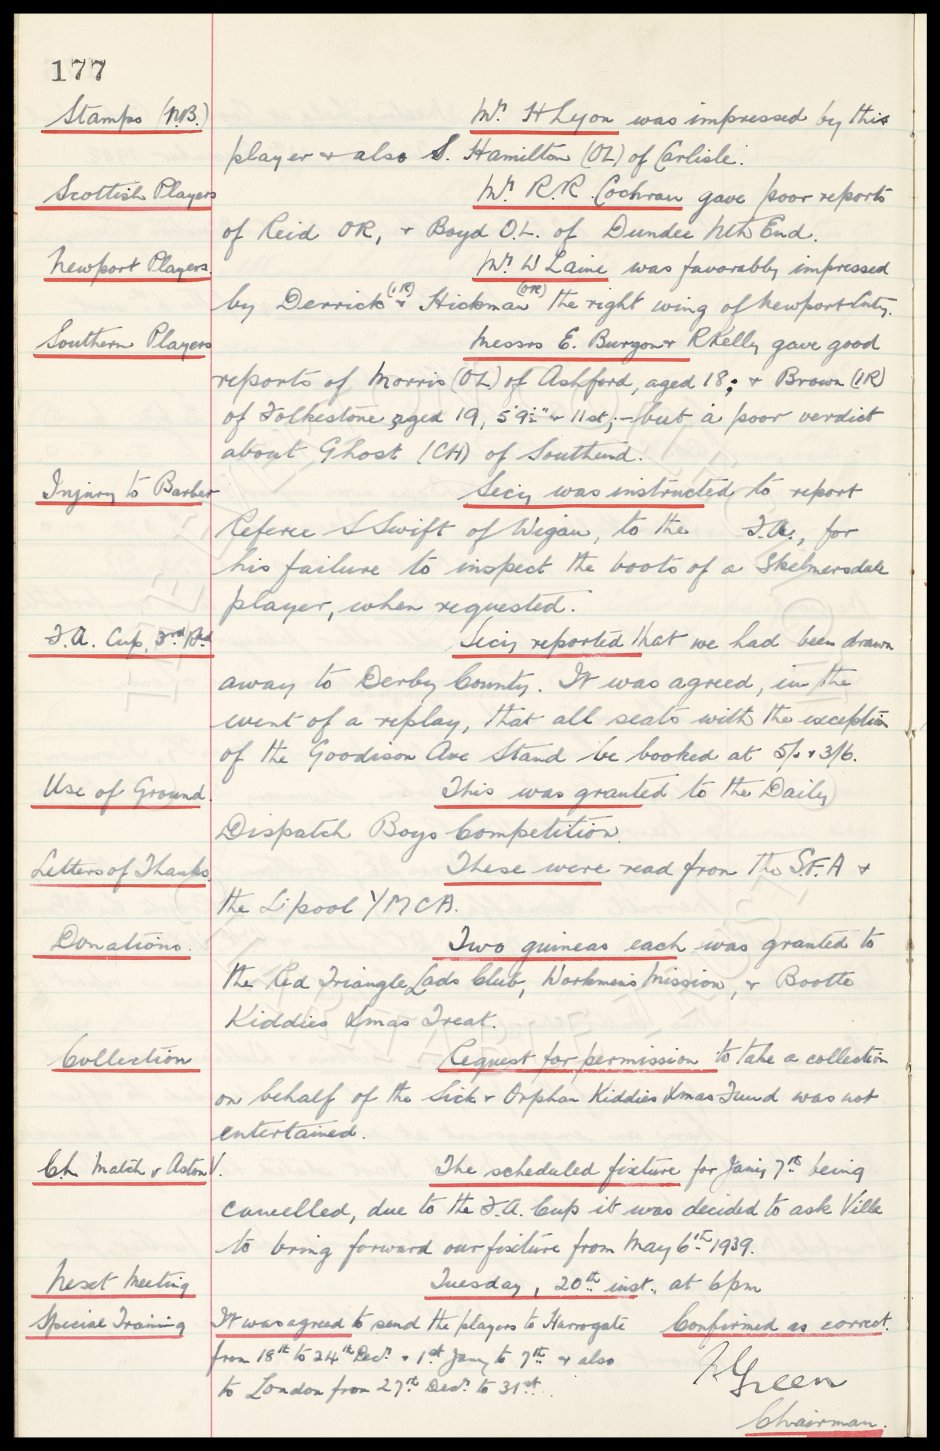 177
Stamps (N.B.) Mr. H Lyon was impressed by this
player & also S. Hamilton (OL) of Carlisle.
Scottish Players Mr. R.R. Cochran gave poor reports
of Reid OR, & Boyd O.L. of Dundee Nth End.
Newport Players. Mr. W Laine was favorably impressed
by Derrick (IR) & Hickman (OR) the right wing of Newport Cnty.
Southern Players Messrs E. Burgon & R Kelly gave good
reports of Morris (OL) of Ashford, aged 18; & Brown (IR)
of Folkestone aged 19, 5'9½" & 11st; - but a poor verdict
about Ghost (CH) of Southend.
Injury to Barber Secy was instructed to report
Referee S Swift of Wigan, to the F.A., for
his failure to inspect the boots of a Skelmersdale
player, when requested.
F.A. Cup, 3rd Rd Secy reported that we had been drawn
away to Derby County. It was agreed, in the
event of a replay, that all seats with the exception
of the Goodison Ave Stand be booked at 5/- & 3/6.
Use of Ground. This was granted to the Daily
Dispatch Boys Competition.
Letters of Thanks. These were read from the S.F.A &
the L'pool YMCA.
Donations. Two guineas each was granted to
the Red Triangle Lads Club, Workmens Mission, & Bootle
Kiddies Xmas Treat.
Collection Request for permission to take a collection
on behalf of the Sick & Orphan Kiddies Xmas Fund was not
entertained.
Ch. Match v Aston V. The scheduled fixture for Jany 7th being
cancelled, due to the F.A. Cup it was decided to ask Villa
to bring forward our fixture from May 6th 1939.
Next Meeting Tuesday, 20th inst. at 6pm
Special Training It was agreed to send the players to Harrogate Confirmed as correct.
from 18th to 24th Decr. & 1st Jany to 7th & also
to London from 27th Decr. to 31st.
Green
Chairman.